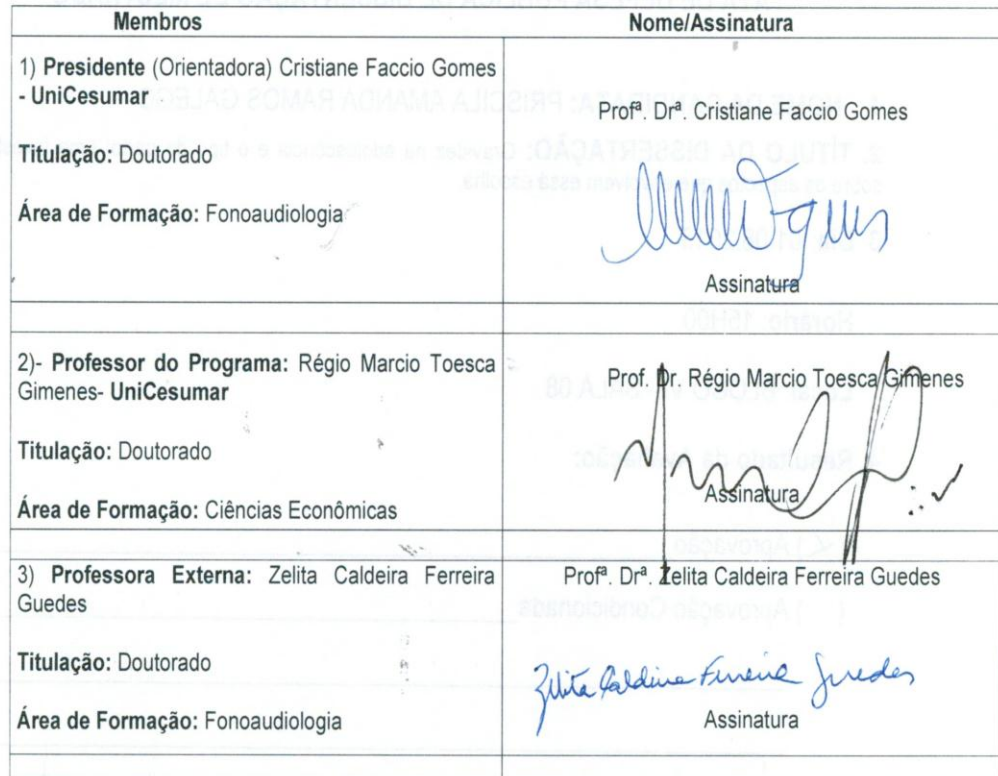 Membros
Nome/Assinatura
1) Presidente (Orientadora) Cristiane Faccio Gomes
- UniCesumar
Titulação: Doutorado
Área de Formação: Fonoaudiologia
Profª. Drª. Cristiane Faccio Gomes
Assinatura
2)- Professor do Programa: Régio Marcio Toesca
Gimenes- UniCesumar
Titulação: Doutorado
Área de Formação: Ciências Econômicas
Prof. Dr. Régio Marcio Toesca Gimenes
Assinatura
3) Professora Externa: Zelita Caldeira Ferreira
Guedes
Titulação: Doutorado
Área de Formação: Fonoaudiologia
Profª. Drª. Zelita Caldeira Ferreira Guedes
Zelita Caldeira Ferreira Guedes
Assinatura